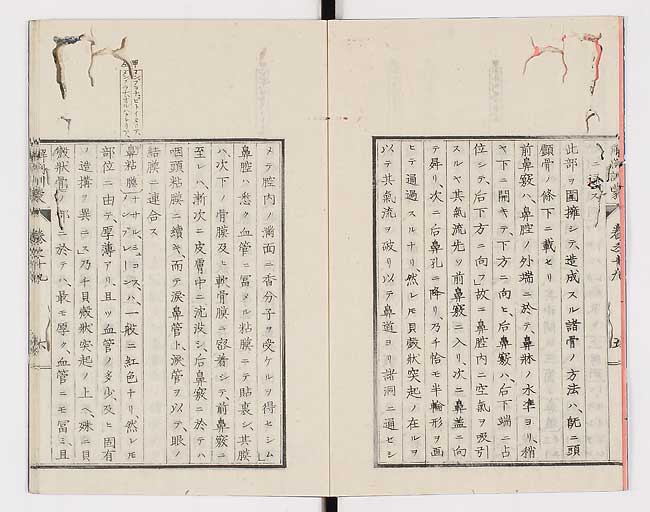 此部ヲ圍擁シテ、造成スル諸骨ノ方法ハ、既ニ頭
顱骨ノ條下ニ載セリ
前鼻竅ハ、鼻腔ノ外端ニ於テ、鼻牀ノ水準ヨリ、稍
ヤ下ニ開キテ、下方ニ向ヒ、後鼻竅ハ、後下端ニ占
位シテ、后下方ニ向フ」故ニ鼻腔内ニ空氣ヲ吸引
スルヤ其氣流先ツ前鼻竅ニ入リ、次ニ鼻蓋ニ向
テ舜リ、次ニ后鼻孔ニ降リ、乃チ恰モ半輪形ヲ画
ヒテ通過スルナリ然レモ貝殻狀突起ノ在ルヲ
以テ其氣流ヲ破リ以テ鼻道ヨリ諸洞ニ通セシ
メテ腔内ノ満面ニ香分子ヲ受ケルヲ得セシム」
鼻腔ハ悉ク血管ニ冨メル粘膜ニテ貼裏シ、其膜
ハ、次下ノ骨膜及ヒ軟骨膜ニ密着シテ、前鼻竅ニ
至レハ、漸次ニ皮膚中ニ沈没シ、后鼻竅ニ於テハ
咽頭粘膜ニ續キ、而テ涙鼻管ト、涙管ヲ以テ、眼ノ
結膜ニ連合ス
部位ニ由テ厚薄アリ、且ツ血管ノ多少、及ヒ固有
ノ造搆ヲ異ニス」乃チ貝殻狀突起ノ上ヘ、殊ニ貝
殻狀骨ノ部ニ於テハ、最モ厚ク血管ニモ冨ミ且